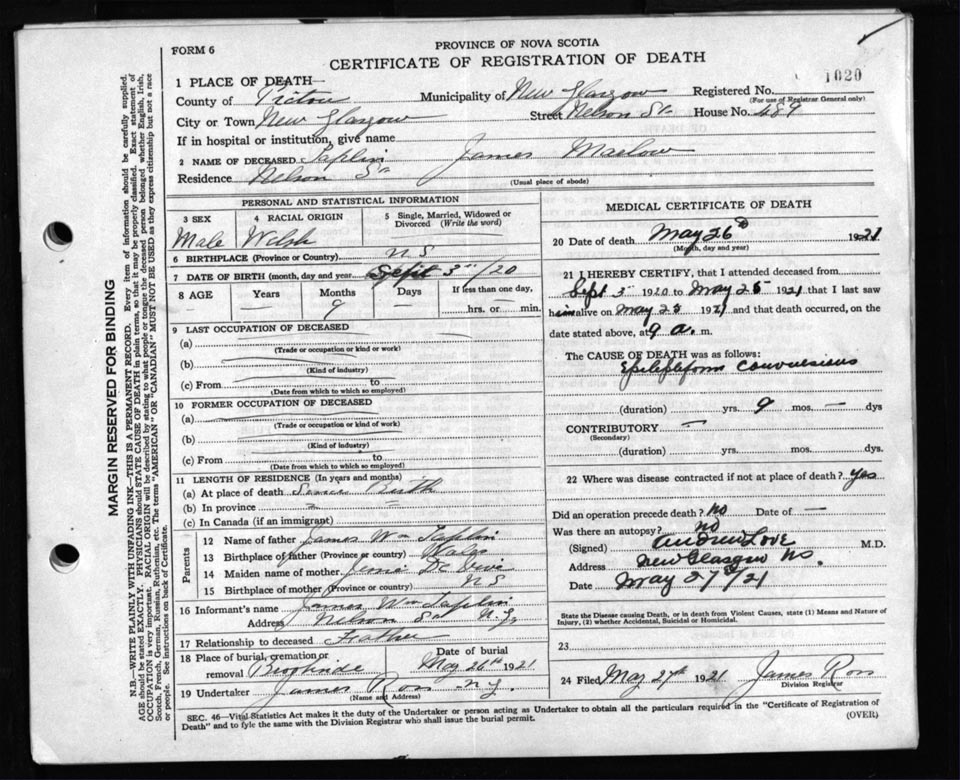 FORM 6
PROVINCE OF NOVA SCOTIA
CERTIFICATE OF REGISTRATION OF DEATH
1020
1 PLACE OF DEATH—
County of Pictou Municipality of New Glasgow Registered No.
(For use of Registrar General only)
City or Town New Glasgow Street Nelson St. House No. 489
If in hospital or institution, give name
2 NAME OF DECEASED Taplin James
Residence Nelson St
(Usual place of abode)
PERSONAL AND STATISTICAL INFORMATION
3 SEX 4 RACIAL ORIGIN 5 Single, Married, Widowed or Divorced (Write the word)
Male Welsh
6 BIRTHPLACE (Province or Country) N S
7 DATE OF BIRTH (month, day and year Sept 3rd/20
8 AGE Years Months Days If less than one day,
— 9 — hrs. or — min.
9 LAST OCCUPATION OF DECEASED
(a)
(Trade or occupation or kind or work)
(b)
(Kind of industry)
(c) From to
(Date from which to which so employed)
10 FORMER OCCUPATION OF DECEASED
(a)
(Trade or occupation or kind of work)
(b)
(Kind of industry)
(c) From to
(Date from which to which so employed)
11 LENGTH OF RESIDENCE (In years and months)
(a) At place of death Since Birth
(b) In province
(c) In Canada (if an immigrant)
Parents
12 Name of father James Wm Taplin
13 Birthplace of father (Province or country) Wales
14 Maiden name of mother
15 Birthplace of mother (Province or country) N S
16 Informant's name James Wm Taplin
Address Nelson St N. G.
17 Relationship to deceased Father
18 Place of burial, cremation or removal Date of burial
May 26th 1921
19 Undertaker James Ross N G.
(Name and Address)
MEDICAL CERTIFICATE OF DEATH
20 Date of death May 26th 1921
(Month, day and year)
21 I HEREBY CERTIFY, that I attended deceased from
Sept 3rd 1920 to May 25 1921 that I last saw
him alive on May 25 1921 and that death occurred, on the
date stated above, at 9 a. m.
The CAUSE OF DEATH was as follows:
Epileptiform convulsions
(duration) yrs. 9 mos. — dys
CONTRIBUTORY —
(Secondary)
(duration) yrs. mos. dys.
22 Where was disease contracted if not at place of death? Yes
Did an operation precede death? No Date of —
Was there an autopsy? no
(Signed) Andrew Love M.D.
Address New Glasgow N.S.
Date May 27th/21
State the Disease causing Death, or in death from Violent Causes, state (1) Means and Nature of
Injury, (2) whether Accidental, Suicidal or Homicidal.
23
24 Filed May 27th 1921 James Ross
Division Registrar
SEC. 46—Vital Statistics Act makes it the duty of the Undertaker or person acting as Undertaker to obtain all the particulars required in the "Certificate of Registration of
Death" and to fyle the same with the Division Registrar who shall issue the burial permit.
(OVER)
MARGIN RESERVED FOR BINDING
N.B.—WRITE PLAINLY WITH UNFADING INK—THIS IS A PERMANENT RECORD. Every item of information should be carefully supplied.
AGE should be stated EXACTLY. PHYSICIANS should STATE CAUSE OF DEATH in plain terms, so that it may be properly classified. Exact statement of
OCCUPATION is very important. RACIAL ORIGIN will be described by stating to what people or tongue the deceased person belonged whether English, Irish,
Scotch, French, German, Russian, Ruthenian, etc. The terms "AMERICAN" OR "CANADIAN" MUST NOT BE USED as they express citizenship but not a race
or people. See instructions on back of Certificate.